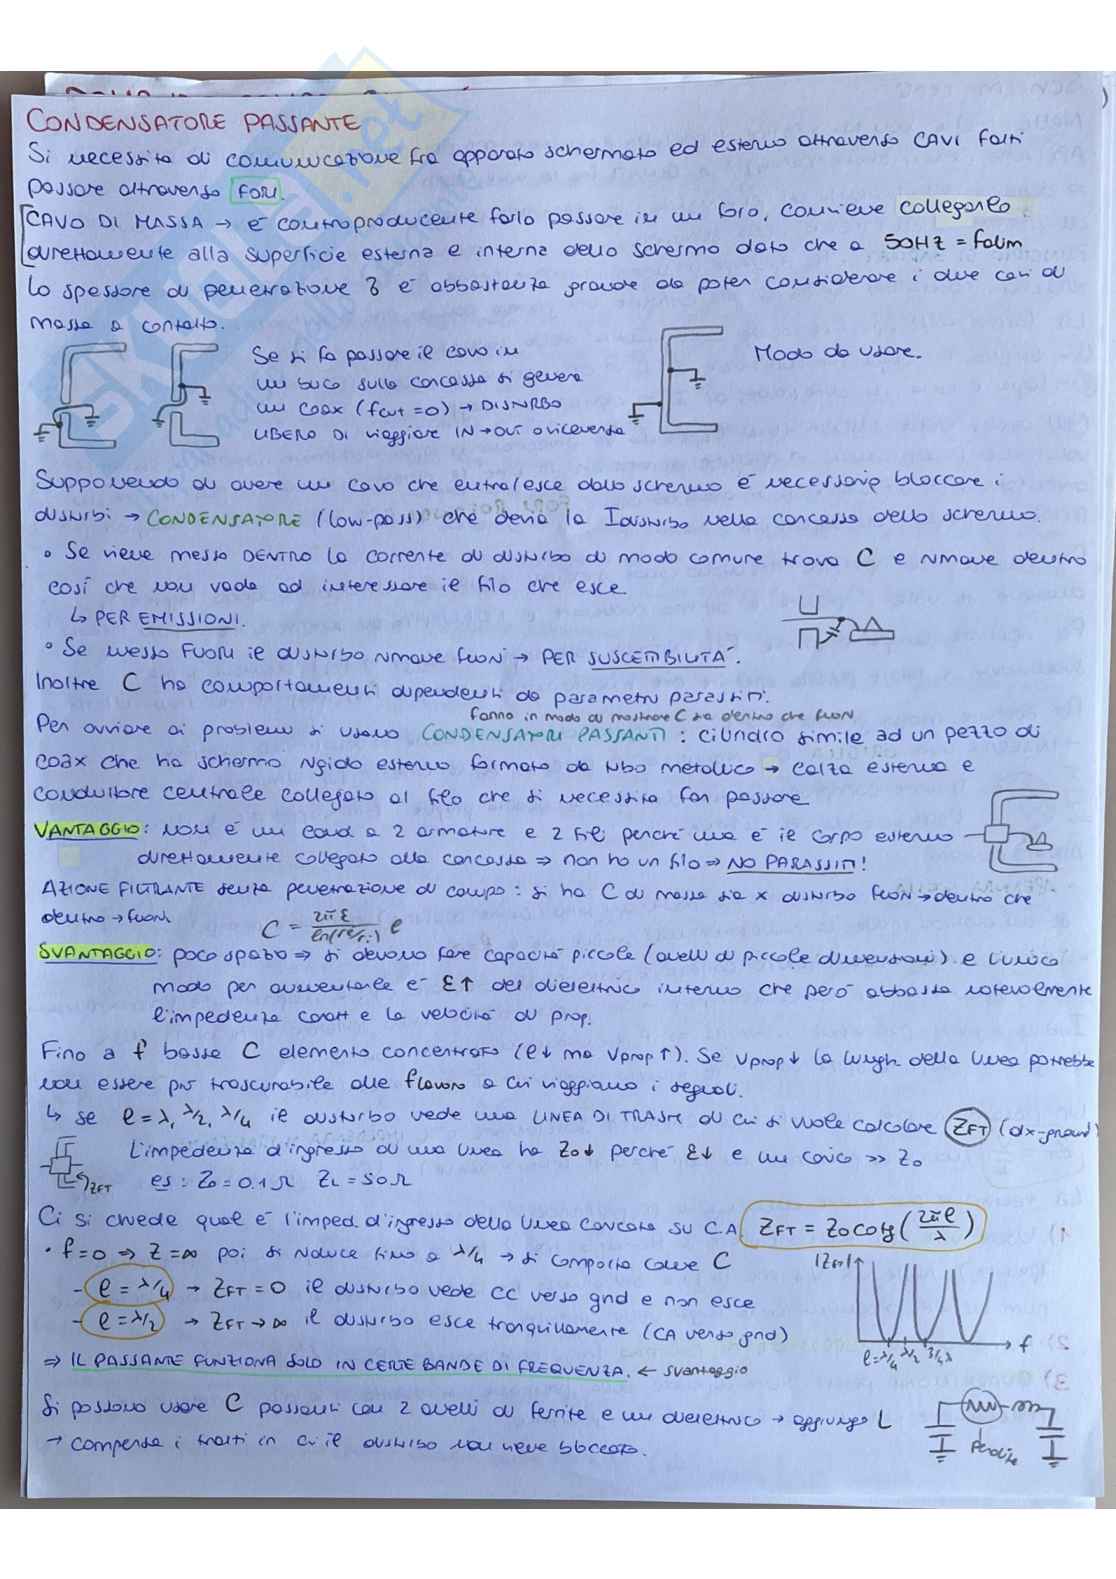 CONDENSATORE PASSANTE
Si necessita di comunicazione fra apparato schermato ed esterno attraverso CAVI fatti
passare attraverso FORI.
CAVO DI MASSA → é controproducente farlo passare in un foro, conviene collegarlo
direttamente alla superficie esterna e interna dello schermo dato che a 50HZ = falim
lo spessore di penetrazione δ é abbastanza grande da poter considerare i due cavi di
massa a contatto.
Se si fa passare il cavo in
un buco sulla carcassa si genera
un coax (fcut = 0) → DISTURBO
LIBERO DI viaggiare IN → OUT o viceversa
Modo da usare.
Supponendo di avere un cavo che entra/esce dallo schermo é necessario bloccare i
disturbi → CONDENSATORE (low-pass) che devia la Idisturbo nella carcassa dello schermo.
• Se viene messo DENTRO la corrente di disturbo di modo comune trova C e rimane dentro
cosí che non vada ad interessare il filo che esce.
↳ PER EMISSIONI.
• Se messo FUORI il disturbo rimane fuori → PER SUSCETTIBILITÁ.
Inoltre C ha comportamenti dipendenti da parametri parassiti.
fanno in modo di mostrare C sia dentro che fuori
Per ovviare ai problemi si usano CONDENSATORI PASSANTI : cilindro simile ad un pezzo di
coax che ha schermo rigido esterno formato da tubo metallico → calza esterna e
conduttore centrale collegato al filo che si necessita far passare
VANTAGGIO: non é un cond a 2 armature e 2 fili perché una é il corpo esterno
direttamente collegato alla carcassa ⇒ non ho un filo ⇒ NO PARASSITI!
AZIONE FILTRANTE senza penetrazione di campo : si ha C di massa sia x disturbo fuori → dentro che
dentro → fuori. C = 2πε / ln(re/ri) l
SVANTAGGIO: poco spazio ⇒ si devono fare capacitá piccole (anelli di piccole dimensioni) e l'unico
modo per aumentarle é ε↑ del dielettrico interno che peró abbassa notevolmente
l'impedenza caratt e la velocitá di prop.
Fino a f basse C elemento concentrato (l↓ ma Vprop↑). Se Vprop↓ la lungh. della linea potrebbe
non essere piú trascurabile alle flavoro a cui viaggiano i segnali.
↳ se l = λ, λ/2, λ/4 il disturbo vede una LINEA DI TRASM di cui si vuole calcolare ZFT (dx-ground)
L'impedenza d'ingresso di una linea ha Z0↓ perché ε↓ e un carico >> Z0
ZFT es : Z0 = 0.1Ω ZL = 50Ω
Ci si chiede qual é l'imped. d'ingresso della linea caricata su C.A. ZFT = Z0 cotg (2πl / λ)
• f=0 ⇒ Z = ∞ poi si riduce fino a λ/4 → si comporta come C
- l = λ/4 → ZFT = 0 il disturbo vede CC verso gnd e non esce
- l = λ/2 → ZFT → ∞ il disturbo esce tranquillamente (CA verso gnd)
|ZFT|
f
l=λ/4 λ/2 3/4λ
⇒ IL PASSANTE FUNZIONA SOLO IN CERTE BANDE DI FREQUENZA. ← svantaggio
Si possono usare C passanti con 2 anelli di ferrite e un dielettrico → aggiungo L
→ compensa i tratti in cui il disturbo non viene bloccato.
Perdite